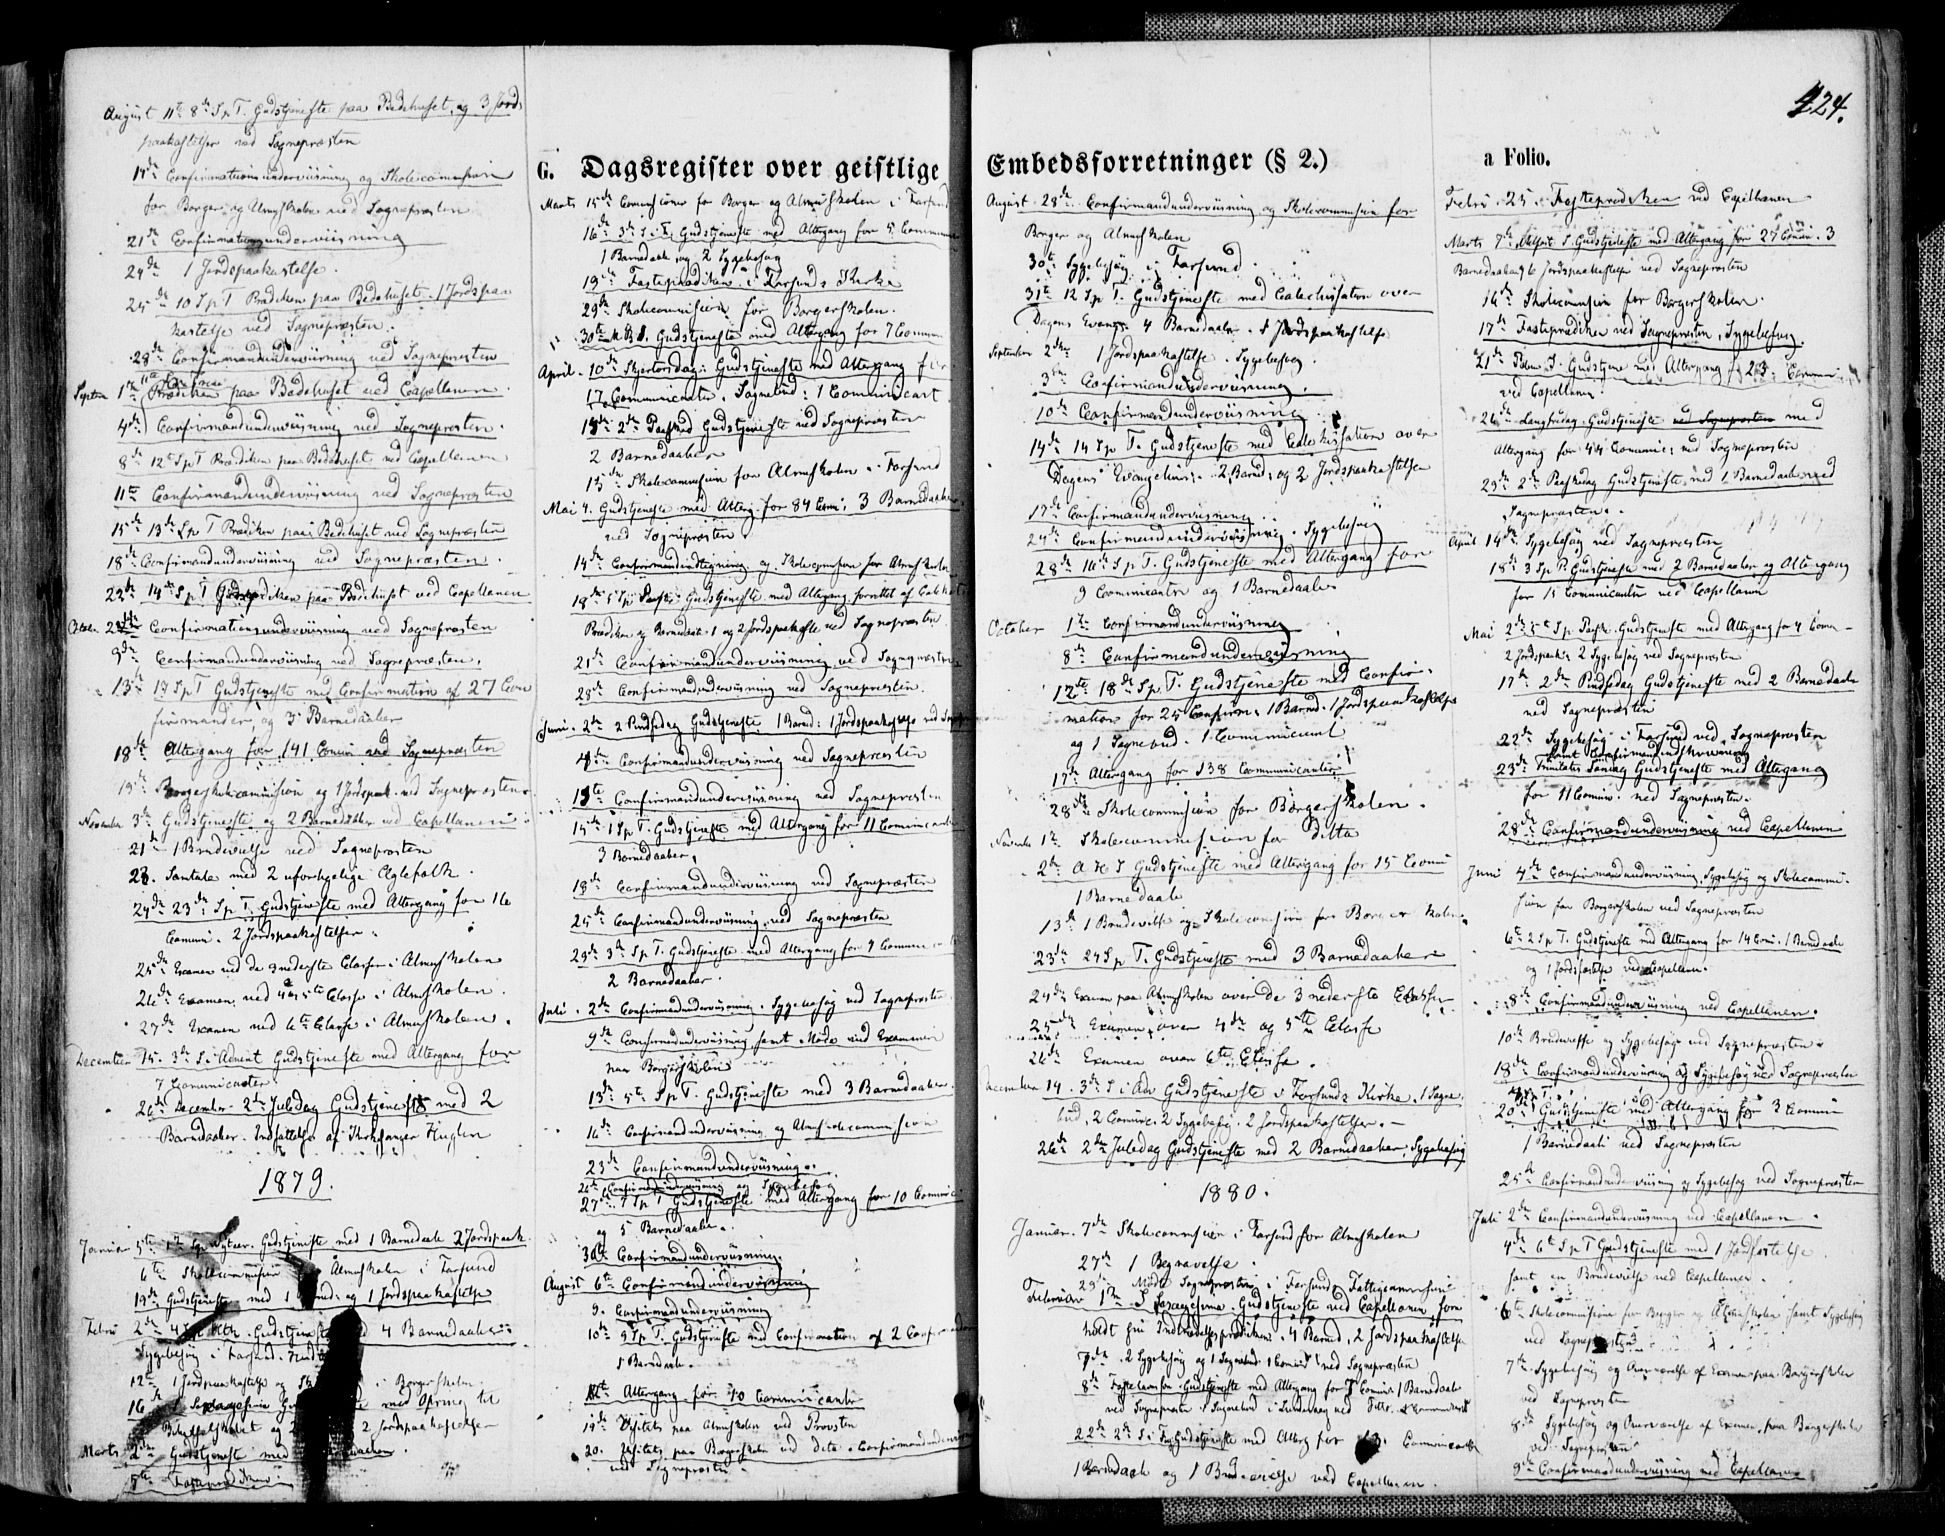 424.
G. Dagsregister over geistlige Embedsforretninger (§ 2.) a Folio.
August 11te 8de S p T. Gudstjeneste paa Bedehuset, og 3 Jords
paakastelser ved Sognepræsten
Confirmationsunderviisning og Skolecommission
for Borger og Almuskolen ved Sognepræsten
21de Confirmationsunderviisning
24de 1 Jordspaakastelse.
25de 10 S p T Prædiken paa Bedehuset. 1 Jordspaa
kastelse ved Sognepræsten.
28de Confirmandunderviisning ved Sognepræsten
Septem 1ste Prædiken paa Bedehuset ved Capellanen.
4de Confirmandunderviisning ved Sognepræsten.
8de 12te S p T Prædiken paa Bedehuset ved Capellanen
11te Confirmandunderviisning ved Sognepræsten
15de 13de S p T Prædiken paa Bedehuset ved Sognepræsten
18de Confirmandunderviisning ved Sognepræsten.
22de 14de S p T Prædiken paa Bedehuset ved Capellanen
October Confirmationsunderviisning ved Sognepræsten
9de Confirmandunderviisning ved Sognepræsten.
13de 17 S p T Gudstjeneste med Confirmation af 27 Con
firmander og 3 Barnedaaber
18de Altergang for 141 Comm ved Sognepræsten
Borgerskolecommission og 1 Jordspaak. ved Sognepræsten
November 3de Gudstjeneste og 2 Barnedaaber ved Capellanen
21de 1 Brudevielse ved Sognepræsten
23. Samtale med 2 uforligelige Ægtefolk.
24de 23de S p T. Gudstjeneste med Altergang for 16
Comuni. 2 Jordspaakastelser.
25de Examen ved de 3 nederste Classer i Almuskolen
26de Examen ved 4de og 5te Classe i Almuskolen.
27de Examen ved 6te Classe i Almueskolen.
December 15. 3de S. i Advent Gudstjeneste med Altergang for
7 Comunicanter.
26de December 2den Juledag Gudstjeneste med 2
Barnedaaber. Indsættelse af Kirkesanger
1879.
Januar 5te Gudstjeneste med 1 Barnedaab 2 Jordspaak.
6te Skolecommission Almuskolen i Farsund
19de Gudstjeneste med 1 og 1 Jordspaakastelse
Febru 2de Gudstjeneste 4 Barnedaaber
Sygebesøg i Farsund.
12te 1 Jordspaakastelse og i Borgerskolen
16de S Sexagesima med Opring til
og 2 Jordspaakastelse
Marts 2de Gudstjeneste med
5te Fasteprædiken
Marts 15de Comission for Borger og Almuskolen i Farsund
16de 3de S i F. Gudstjeneste med Altergang for 5 Commun
1 Barnedaab og 2 Sygebesøg
19de Fasteprædiken i Farsunds Kirke
29de Skolecommission for Borgerskolen.
30de M. B. D. Gudstjeneste med Altergang for 7 Commun
April. 10de Skjertorsdag: Gudstjeneste med Altergang for
17 Communicanter. Sognebud: 1 Communicant
2de Paaskedag Gudstjeneste ved Sognepræsten
2 Barnedaaber
15de Skolecommission for Almuskolen i Farsund
Mai 4. Gudstjeneste med Alterg. for 84 Comm: 3 Barnedaaber
ved Sognepræsten.
14de Confirmandindtegning og Skolecommission for Almuskolen
18de Gudstjeneste med Altergang forrettet af
Prædiken og Barnedaab 1 og 2 Jordspaakaste ved Sognepræsten
21de Confirmandunderviisning ved Sognepræsten
28de Confirmandunderviisning ved Sognepræsten
Juni. 2de 2 Pindsedag Gudstjeneste. 1 Barned: 1 Jordspaakastelse ved
4de Confirmandunderviisning ved Sognepræsten
Confirmandunderviisning ved Sognepræsten
15de 1 S p T. Gudstjeneste med Altergang for 11 Comunicanter
3 Barnedaaber.
18de Confirmandunderviisning ved Sognepræsten
25de Confirmandunderviisning ved Sognepræsten
29de 3de S p T. Gudstjeneste med Altergang for 9 Commun
2 Barnedaaber
Juli. 2de Confirmandunderviisning. Sygebesøg ved Sognepræsten
9de Confirmandunderviisning samt Møde ved Examen
paa Borgerskolen
13de 5te S p T. Gudstjeneste med 3 Barnedaaber.
16de Confirmandunderviisning og Almuskolecommission
23de Confirmandunderviisning.
26de Confirmandunderviisning og Sygebesøg
27de 7 S p T Gudstjeneste med Altergang for 10 Comunic
og 5 Barnedaaber.
30te Confirmandunderviisning.
August 6te Confirmandunderviisning
9. Confirmandunderviisning
10de 9 S p T. Gudstjeneste med Confirmation af 2 Confirmander
1 Barnedaab.
Altergang for 10 Communicanter
19de Visitats paa Almuskolen ved Provsten
20. Visitats paa Borgerskolen ved dito. Confirmandunder
ved Sognepræsten
August 28de Confirmandunderviisning og Skolecommission for
Borger og Almuskolen
30te Sygebesøg i Farsund.
31te 12 S p T. Gudstjeneste med Catechisation over
Dagens Evang. 4 Barnedaaber. 1 Jordspaakastelse
September 2den 1 Jordspaakastelse. Sygebesøg.
3de Confirmandunderviisning.
10de Confirmandunderviisning
14de 14 S p T. Gudstjeneste med Catechisation over
Dagens Evangelium. 2 Barned: og 2 Jordspaakastelser
17de Confirmandunderviisning
24de Confirmandunderviisning. Sygebesøg
28de 16de S p T. Gudstjeneste med Altergang for
9 Communicanter og 1 Barnedaab
October 1te Confirmandunderviisning
8de Confirmandunderviisning
12te 18de S p T. Gudstjeneste med Confir-
mation for 25 Confirm. 1 Barned. 1 Jordspaakastelse
og 1 Sognebud. 1 Communicant
17de Altergang for 138 Communicanter
28de Skolecommission for Borgerskolen.
November 1te Skolecommission for Ditto
2de A H S Gudstjeneste med Altergang for 15 Comm
1 Barnedaab
13de 1 Brudevielse og Skolecomission for Borgerskolen
23de 24 S p T. Gudstjeneste med 3 Barnedaaber
24de Examen paa Almuskolen over de 3 nederste Classer
25de Examen over 4de og 5te Classe
26de Examen over 6te Classe.
December 14. 3de S i Adv Gudstjeneste i Farsunds Kirke. 1 Sogne
bud. 2 Comunic. 2 Sygebesøg. 2 Jordspaakastelser.
26de 2de Juledag Gudstjeneste med 2 Barnedaaber, Sygebesøg
1880.
Januar. 7de Skolecommission i Farsund for Almuskolen
27de 1 Begravelse.
28de Møde Sognepræsten i Farsunds Fattigcommission
Februar 1ste S Sexagesima. Gudstjeneste ved Capellanen som
holdt sin Indtrædelsesprædiken. 4 Barned. 2 Jordspaakastelse
2 Sygebesøg og 1 Sognebud 1 Comuni ved Sognepræsten
8de Fastelavnson. Gudstjeneste med Altergang for Comun. 1 Barnedaab
ved Sognepræsten
22de 2de S. i F. Gudstjeneste med Alterg for Comunicanter
1 Barnedaab og 1 Brudevielse ved Capellanen.
Febru 25. Fasteprædiken ved Capellanen
Marts 7de Gudstjeneste med Altergang for 27 Comm. 3
Barnedaaber, Jordspaakastelse ved Sognepræsten
16de Skolecommission for Borgerskolen.
17de Fasteprædiken ved Sognepræsten, Sygebesøg.
21de Palme S. Gudstjene med Altergang f 23 Commun
ved Capellanen
26de Langfredag. Gudstjeneste ved Sognepræsten med
Altergang for 44 Comunic: ved Sognepræsten
29de 2de Paaskedag Gudstjeneste med 1 Barnedaab ved
Sognepræsten.
April 14de Sygebesøg ved Sognepræsten
18de 3 S p P. Gudstjeneste med 2 Barnedaaber og Altergang
for 11 Communicanter ved Capellanen
Mai 2de 5te S p Paaske. Gudstjeneste med Altergang for 4 Comm-
2 Jordspaak: 2 Sygebesøg ved Sognepræsten
17de 2den Pindsedag Gudstjeneste med 2 Barnedaab
ved Sognepræsten
22de Sygebesøg i Farsund ved Sognepræsten
samt Confirmandindskrivning
23de Trinitatis Søndag Gudstjeneste med Altergang
for 11 Comm. ved Sognepræsten.
28de Confirmandunderviisning ved Capellanen
Juni 4de Confirmandunderviisning, Sygebesøg og Skolecommi-
sion for Borgerskolen ved Sognepræsten
6te 2 S p T. Gudstjeneste med Altergang for 14 Comm. 1 Barnedaab
og 1 Jordfæstelse ved Capellanen.
8de Confirmandunderviisning ved Capellanen.
10de Brudevielse og Sygebesøg ved Sognepræsten
18de Confirmandunderviisning og Sygebesøg ved Sognepræsten
20de Gudstjeneste med Altergang for 3 Commun
1 Barnedaab ved Sognepræsten
25de Confirmandunderviisning og Sygebesøg ved Sognepræsten
Juli 2de Confirmandunderviisning ved Capellanen
4de 6te S p T Gudstjeneste med 1 Jordfæstelse.
samt en Brudevielse ved Capellanen.
6te Skolecommission for Borger og Almuskolen samt Sygebesøg
ved Sognepræsten
7de Sygebesøg og Overværelse af Examen paa Borgerskolen
ved Sognepræsten
8de Sygebesøg og Overværelse af Examen paa Borgerskolen
ved Sognepræsten
9de Confirmandunderviisning ved Capellanen